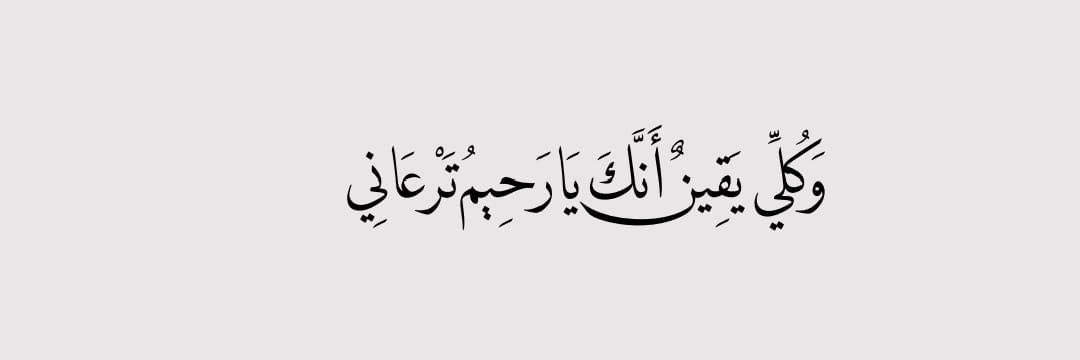 وَكُلِّي يَقِينٌ أَنَّكَ يَا رَحِيمُ تَرْعَانِي